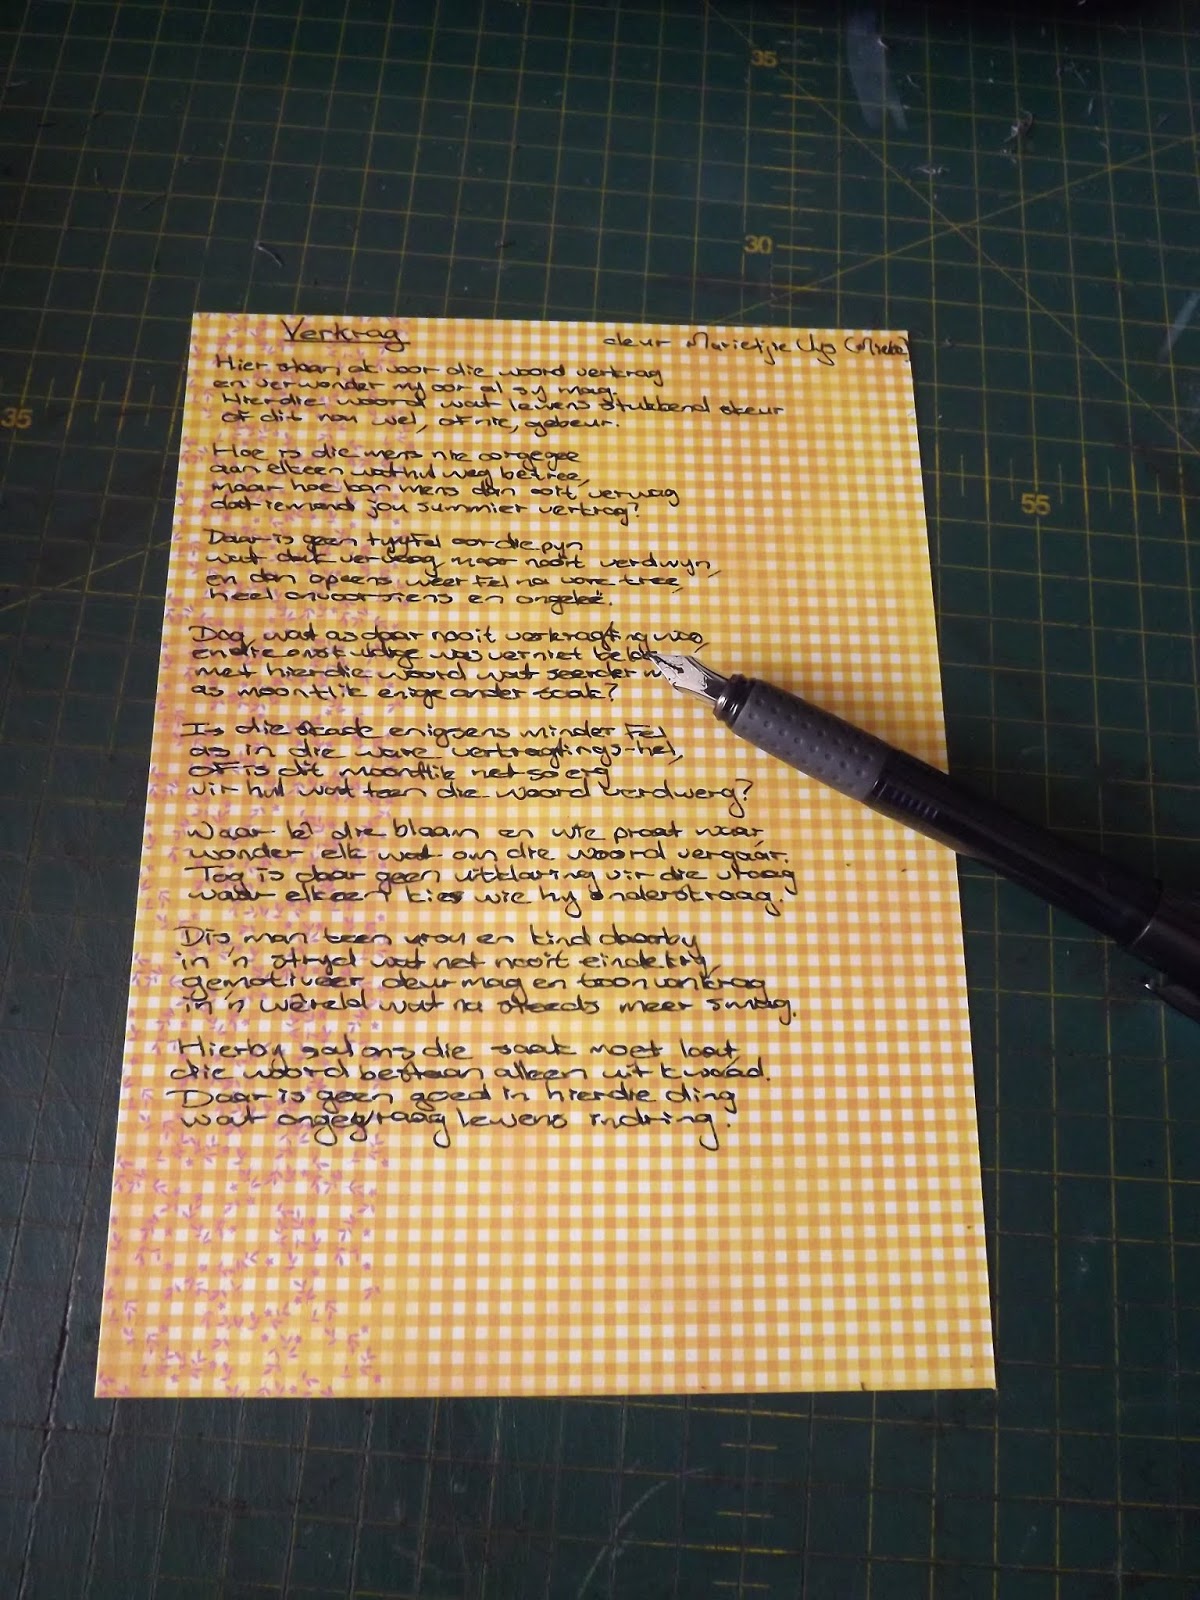 35
30
35
55
Verkrag deur Marietjie
Hier staan ek voor die woord verkrag
en verwonder my oor al sy mag.
Hierdie woord wat lewens stukkend skeur
of dit nou wel, of nie, gebeur.
Hoe is die mens nie oorgegee
aan elkeen wat hul weg betree,
maar hoe kan mens dan ooit verwag
dat iemand jou summier verkrag?
Daar is geen twyfel oor die pyn
wat dalk vervaag, maar nooit verdwyn,
en dan opeens weer fel na vore tree,
heel onvoorsiens en ongeleë.
Dog, wat as daar nooit verkragting was,
en die onskuldige was verniet
met hierdie woord wat seerder
as moontlik enige ander saak?
Is die skade enigsens minder fel
as in die ware verkragtings-hel,
of is dit moontlik net so erg
vir hul wat teen die woord verdwerg?
Waar lê die blaam en wie praat waar
wonder elk wat om die woord vergaár.
Tog is daar geen uitklaring vir die vraag
waar elkeen kies wie hy onderskraag.
Dis man teen vrou en kind daarby
in 'n stryd wat net nooit einde kry,
gemotiveer deur mag en toorn
in 'n wêreld wat na steeds meer smag.
Hierby sal ons die saak moet laat,
die woord bestaan alleen uit kwaád.
Daar is geen goed in hierdie ding
wat ongegraag lewens indring!